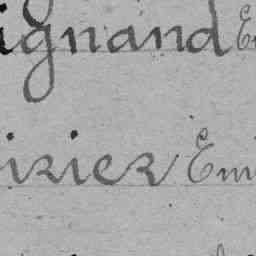 ignand E
irier Emi